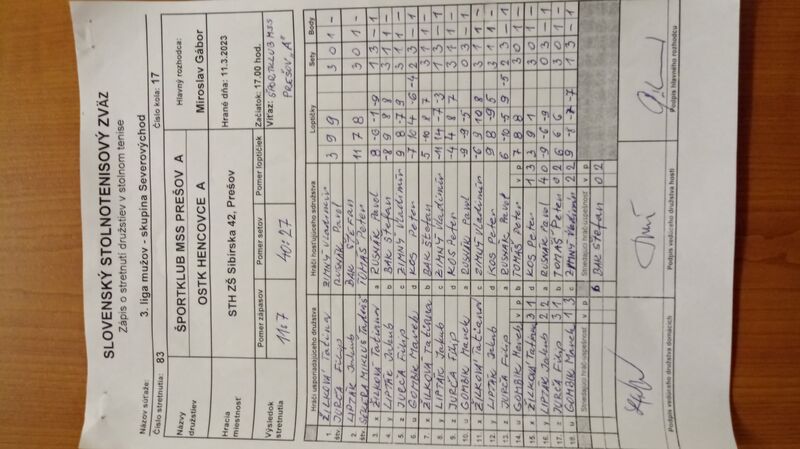 SLOVENSKÝ STOLNOTENISOVÝ ZVÄZ
Zápis o stretnutí družstiev v stolnom tenise
Názov súťaže: 3. liga mužov - skupina Severovýchod
Číslo stretnutia: 83 Číslo kola: 17
Názvy družstiev ŠPORTKLUB MSS PREŠOV A Hlavný rozhodca:
OSTK HENCOVCE A Miroslav Gábor
Hracia miestnosť STH ZŠ Sibírska 42, Prešov Hrané dňa: 11.3.2023
Výsledok stretnutia Pomer zápasov Pomer setov Pomer loptičiek Začiatok: 17.00 hod.
11:7 40:27 Víťaz: ŠPORTKLUB MSS
PREŠOV "A"
Hráči usporiadajúceho družstva Hráči hosťujúceho družstva Loptičky Sety Body
1. ŽILKOVÁ ZIMNÝ Vladimír 3 9 9 3 0 1 -
štv. JURČA Filip RUSNÁK Pavol
2. LIPTÁK Jakub BAK Štefan 11 7 8 3 0 1 -
štv. TOMÁŠ PETER
3. x ŽILKOVÁ Tatiana a RUSNÁK Pavol 1 3 - 1
4. y LIPTÁK Jakub b BAK Štefan -8 9 8 8 3 1 1 -
5. z JURČA Filip c ZIMNÝ Vladimír 9 8 -7 9 3 1 1 -
6. u GOMBIK Marek d KOS Peter -7 10 4 -6 -4 2 3 - 1
7. x ŽILKOVÁ TATIANA b BAK Štefan 5 -10 8 7 3 1 1 -
8. y LIPTÁK Jakub c ZIMNÝ Vladimír 1 3 - 1
9. z JURČA Filip d KOS Peter -4 4 8 7 3 1 1 -
10. u GOMBIK Marek a RUSNÁK Pavol -9 -9 -5 0 3 - 1
11. x ŽILKOVÁ Tatiana c ZIMNÝ Vladimír -6 9 10 8 3 1 1 -
12. y LIPTÁK Jakub d KOS Peter 9 8 -9 5 3 1 1 -
13. z JURČA Filip a RUSNÁK Pavol 2 3 - 1
14. u GOMBIK Marek v p b TOMÁŠ Peter v p 7 8 8 3 0 1 -
15. x ŽILKOVÁ Tatiana 3 1 d KOS Peter 1 3 3 9 1 3 0 1 -
16. y LIPTÁK Jakub 2 2 a RUSNÁK Pavol 4 0 -9 -6 -9 0 3 - 1
17. z JURČA Filip 3 1 b TOMÁŠ Peter 0 2 6 6 6 3 0 1 -
18. u GOMBIK Marek 1 3 c ZIMNÝ Vladimír 2 2 1 3 - 1
Striedajúci hráč-úspešnosť v p Striedajúci hráč-úspešnosť v p
B BAK Štefan 0 2
Podpis vedúceho družstva domácich Podpis vedúceho družstva hostí Podpis hlavného rozhodcu